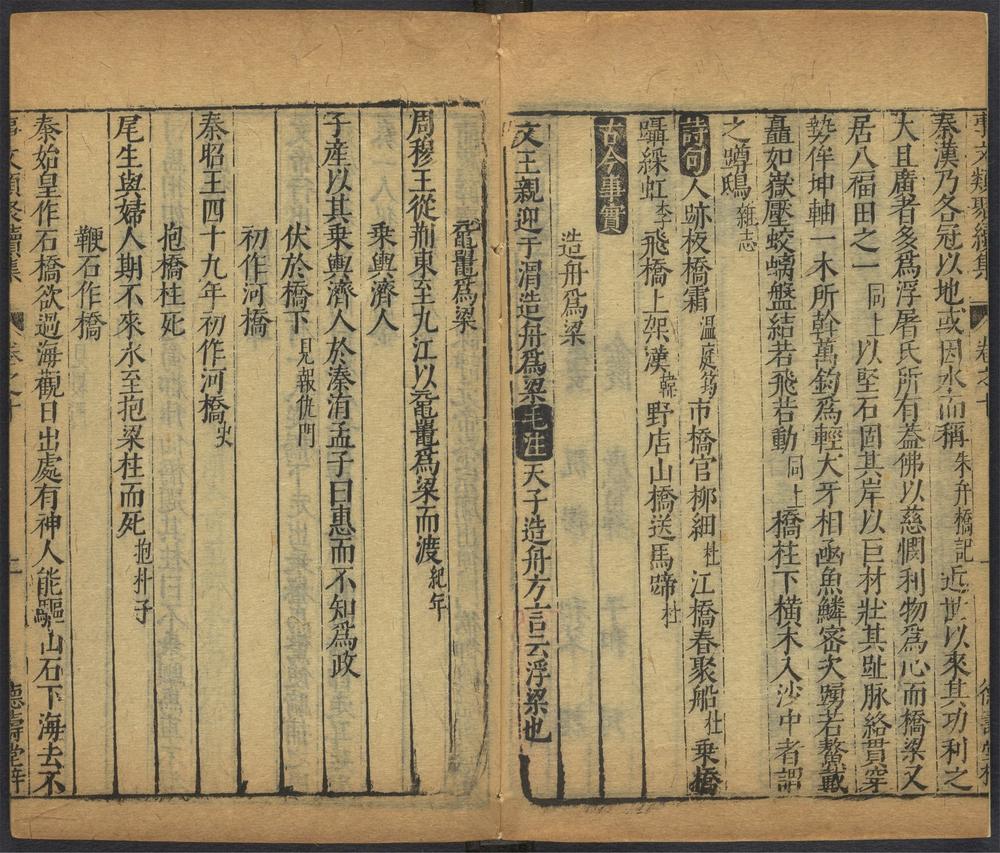 事文類聚續集 卷之十
秦漢乃各冠以地或因水而稱朱舟橋記近世以來其功利之
大且廣者多為浮屠氏所有蓋佛以慈憫利物為心而橋梁又
居八福田之一同上以堅石固其岸以巨材壯其趾脉絡貫穿
勢侔坤軸一木所幹萬鈞為輕犬牙相函魚鱗密次踴若鰲戴
矗如嶽壓蛟螭盤結若飛若動同上橋柱下橫木入沙中者謂
之蹲鴟雜志
詩句人跡板橋霜溫庭筠市橋官柳細杜江橋春聚船杜乗橋
躡綵虹李飛橋上架漢韓野店山橋送馬蹄杜
古今事實
造舟爲梁
文王親迎于渭造舟爲梁毛注天子造舟方言云浮梁也
黿鼉爲梁
周穆王從荆東至九江以黿鼉爲梁而渡紀年
乗輿濟人
子產以其乗輿濟人於溱洧孟子曰惠而不知爲政
伏於橋下見報仇門
初作河橋
秦昭王四十九年初作河橋史
抱橋柱死
尾生與婦人期不來水至抱梁柱而死抱朴子
鞭石作橋
秦始皇作石橋欲過海觀日出處有神人能驅山石下海去不
事文類聚續集 卷之十 三 德壽堂梓